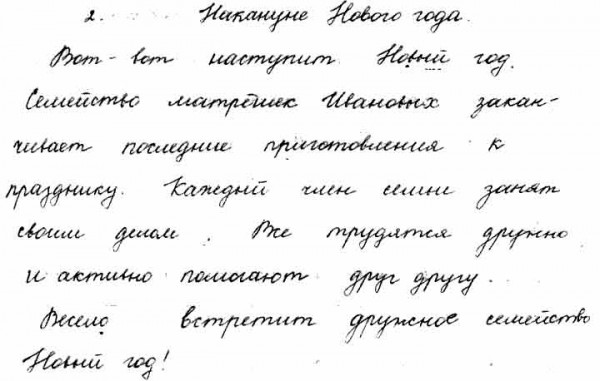 2. Накануне Нового года.
Вот-вот наступит Новый год.
Семейство матрёшек Ивановых закан-
чивает последние приготовления к
празднику. Каждый член семьи занят
своим делом. Все трудятся дружно
и активно помогают друг другу.
Весело встретит дружное семейство
Новый год!